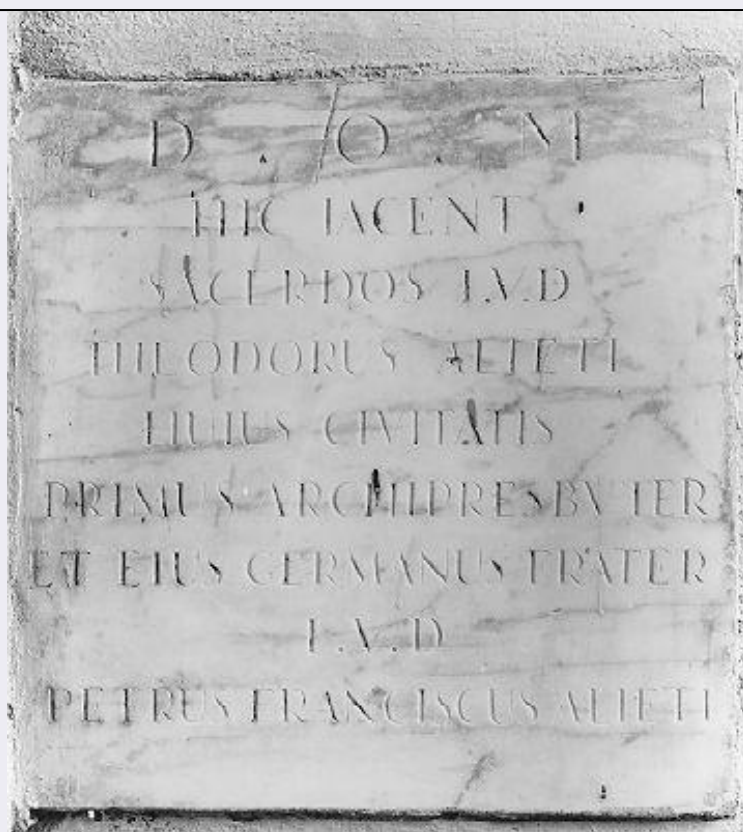 D . O . M
HIC IACENT
SACERDOS I.V.D
THEODORUS ALIETI
HUIUS CIVITATIS
PRIMUS ARCHIPRESBVTER
ET EIUS GERMANUS FRATER
I.V.D
PETRUS FRANCISCUS ALIETI